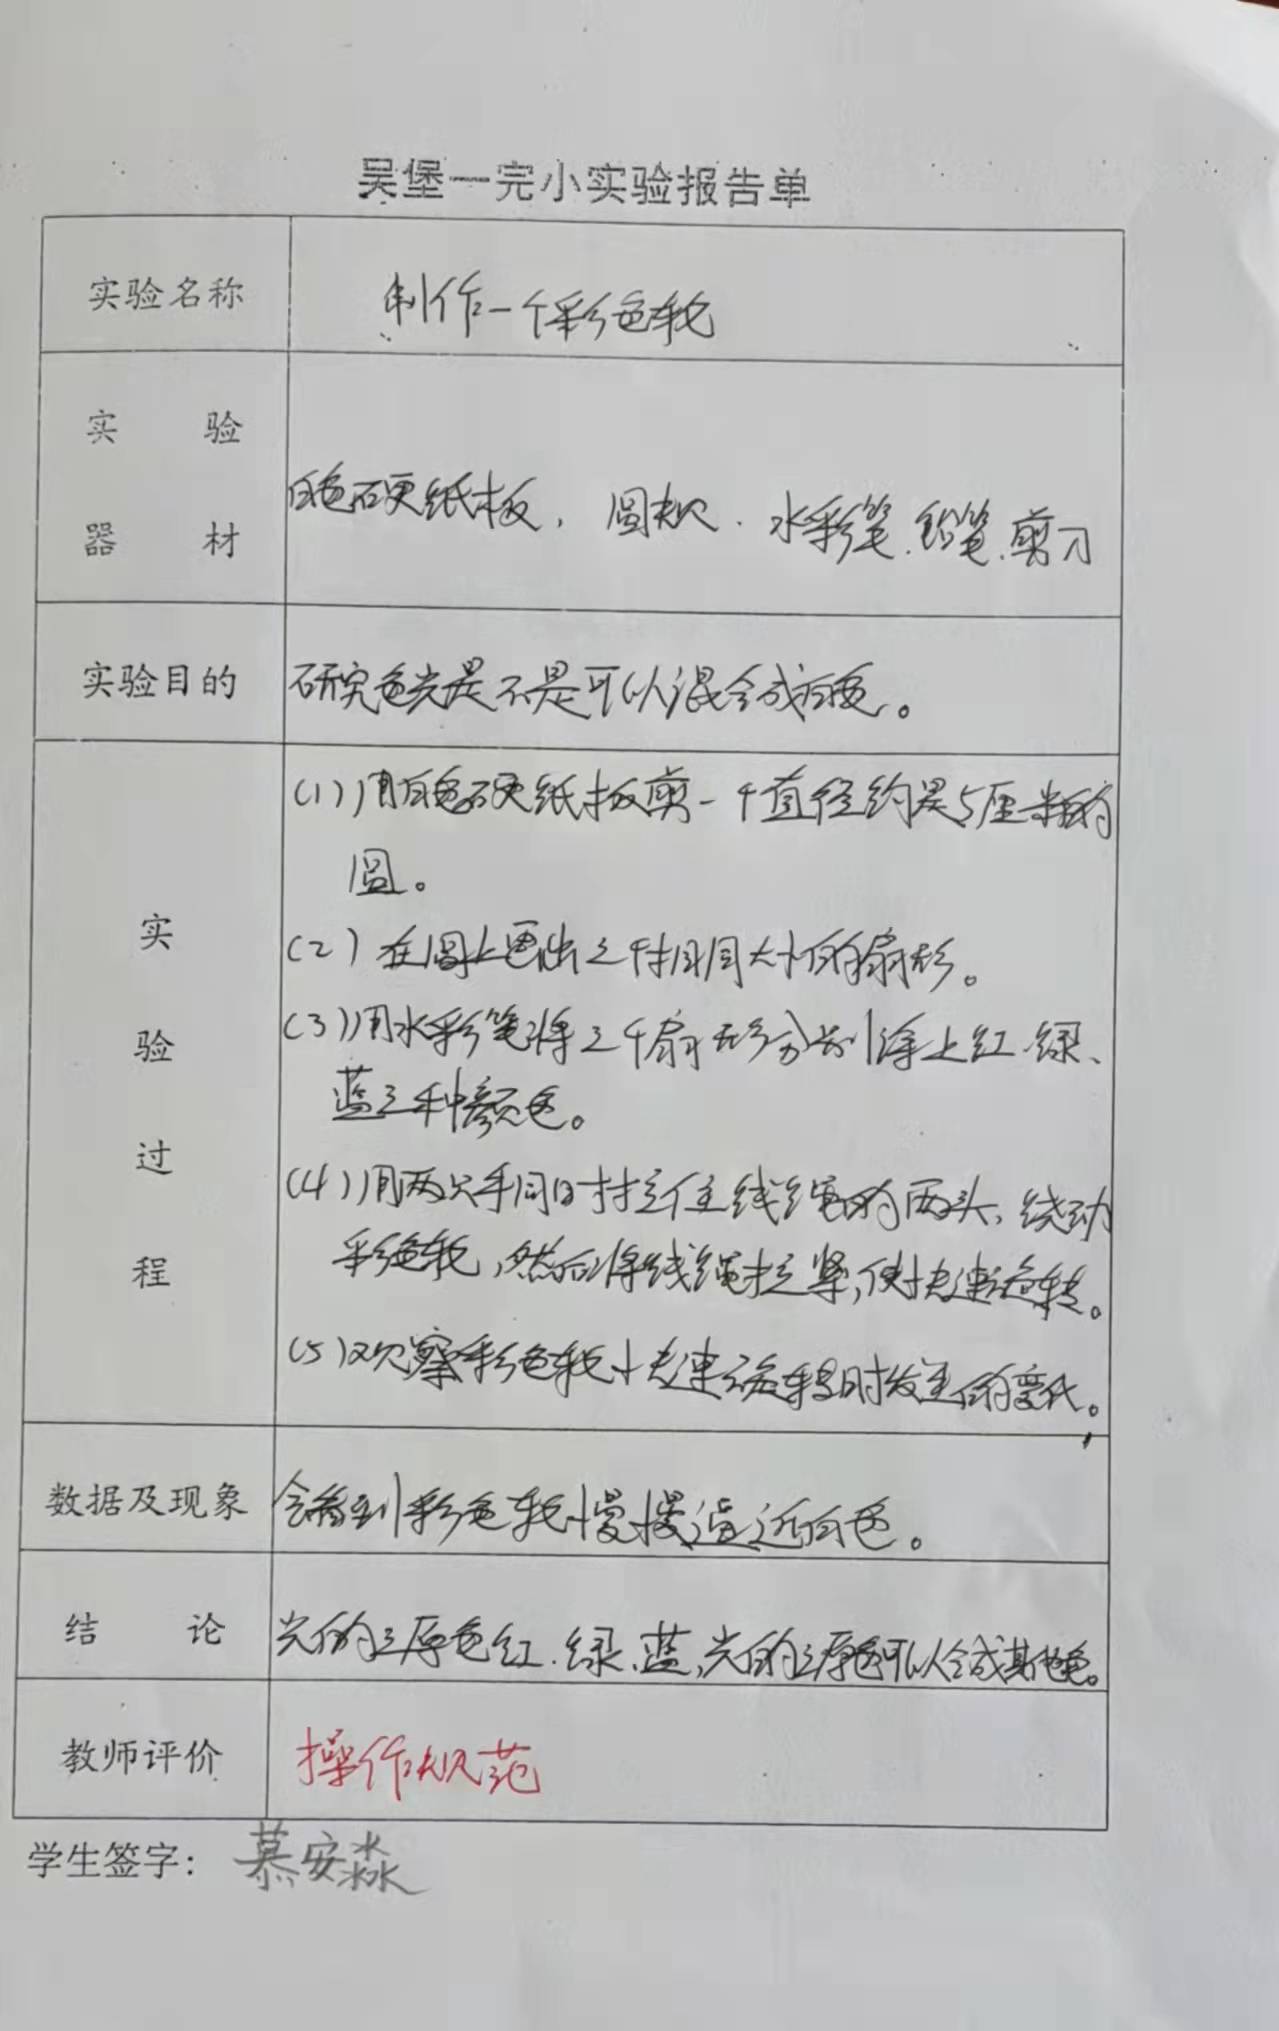 吴堡一完小实验报告单
实验名称
制作一个彩色轮
实验
器材
白色硬纸板，圆规、水彩笔、铅笔、剪刀
实验目的
研究色光是不是可以混合成白色。
实验过程
(1)用白色硬纸板剪一个直径约是5厘米的
圆。
(2)在圆上画出三个相同大小的扇形。
(3)用水彩笔将三个扇形分别涂上红、绿、
蓝三种颜色。
(4)用两只手同时拉住线绳的两头，绕动
彩色轮，然后将线绳拉紧，使快速旋转。
(5)观察彩色轮快速旋转时发生的变化。
数据及现象
会看到彩色轮慢慢逼近白色。
结论
光的三原色红、绿、蓝，光的三原色可以合成其他色。
教师评价
操作规范
学生签字：慕安淼